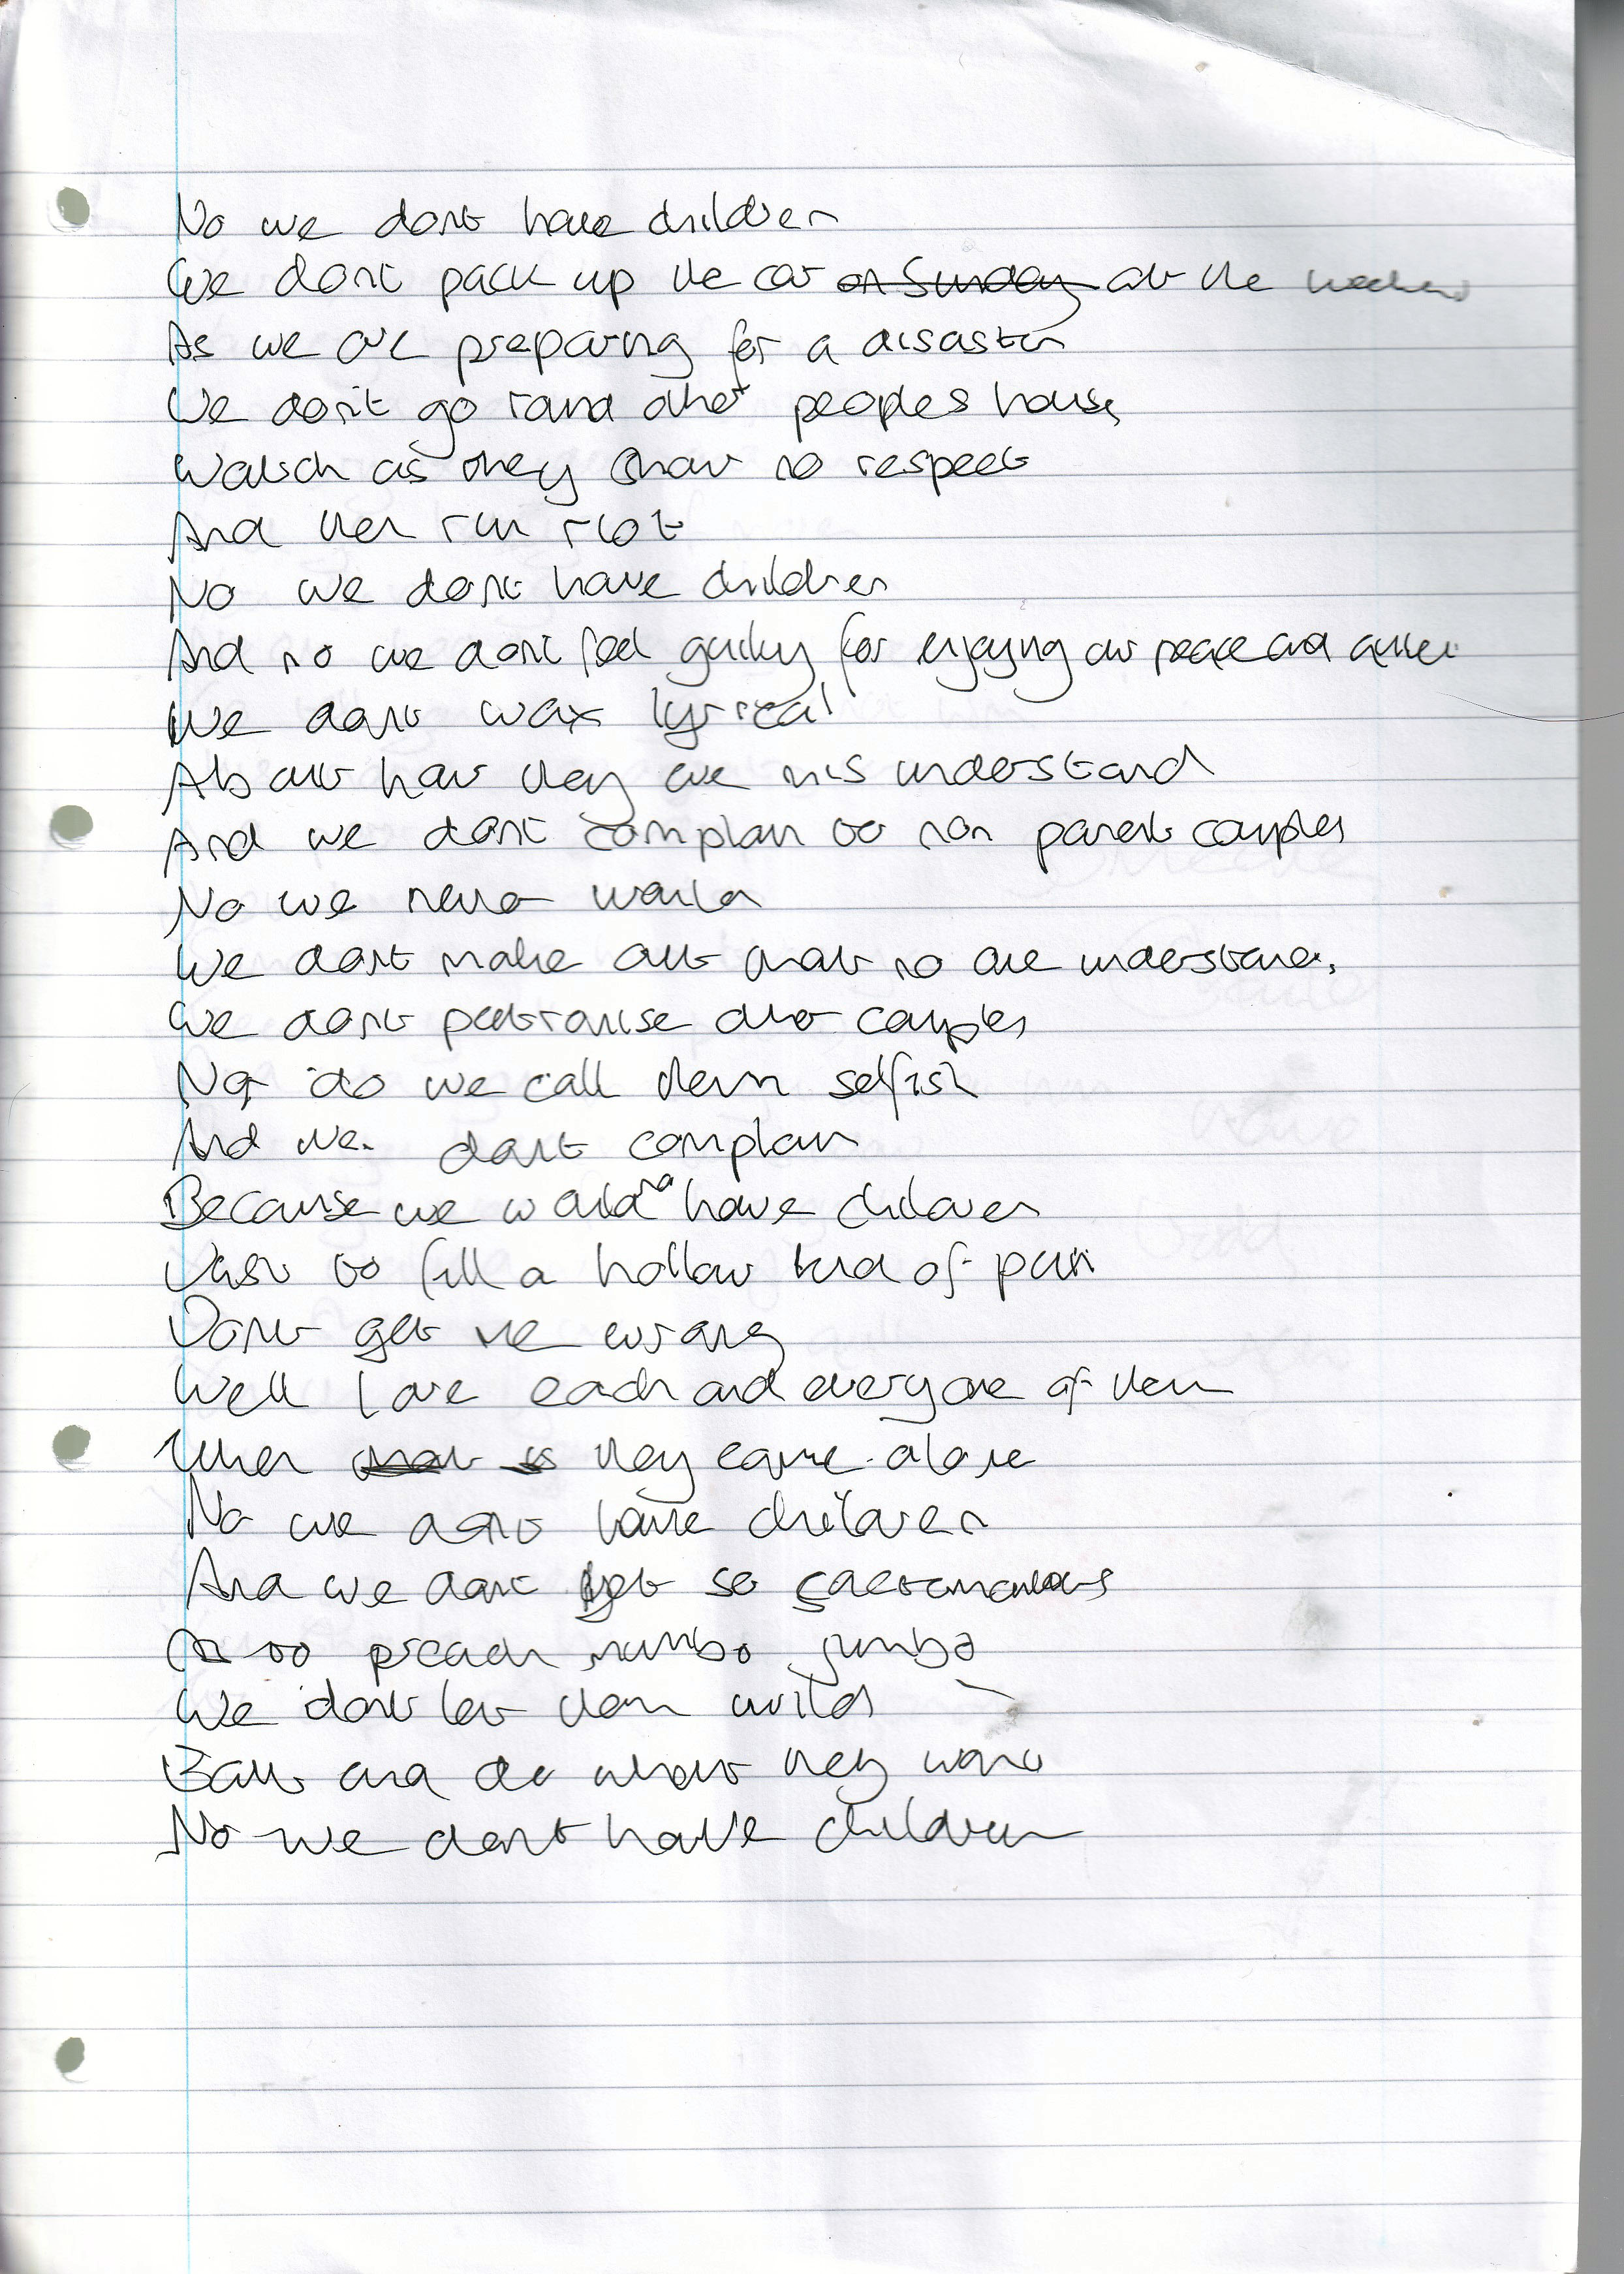 No we dont have children
We dont pack up the car on Sunday at the weekend
As we are preparing for a disaster
We dont go round other peoples houses
Watch as they show no respect
And then run riot
No we dont have children
And no we dont feel guilty for enjoying our peace and quiet
We dont wax lyrical
About how they are misunderstand
And we dont complain to non parent couples
No we never would
We dont make out that no one understands
We dont patronise other couples
Nor do we call them selfish
And we dont complain
Because we would have children
Just to fill a hollow kind of pain
Dont get me wrong
Well love each and everyone of them
When they come alone
No we dont have children
And we dont get so
As to preach mumbo jumbo
We dont let them wild
But and do what they want
No we dont have children